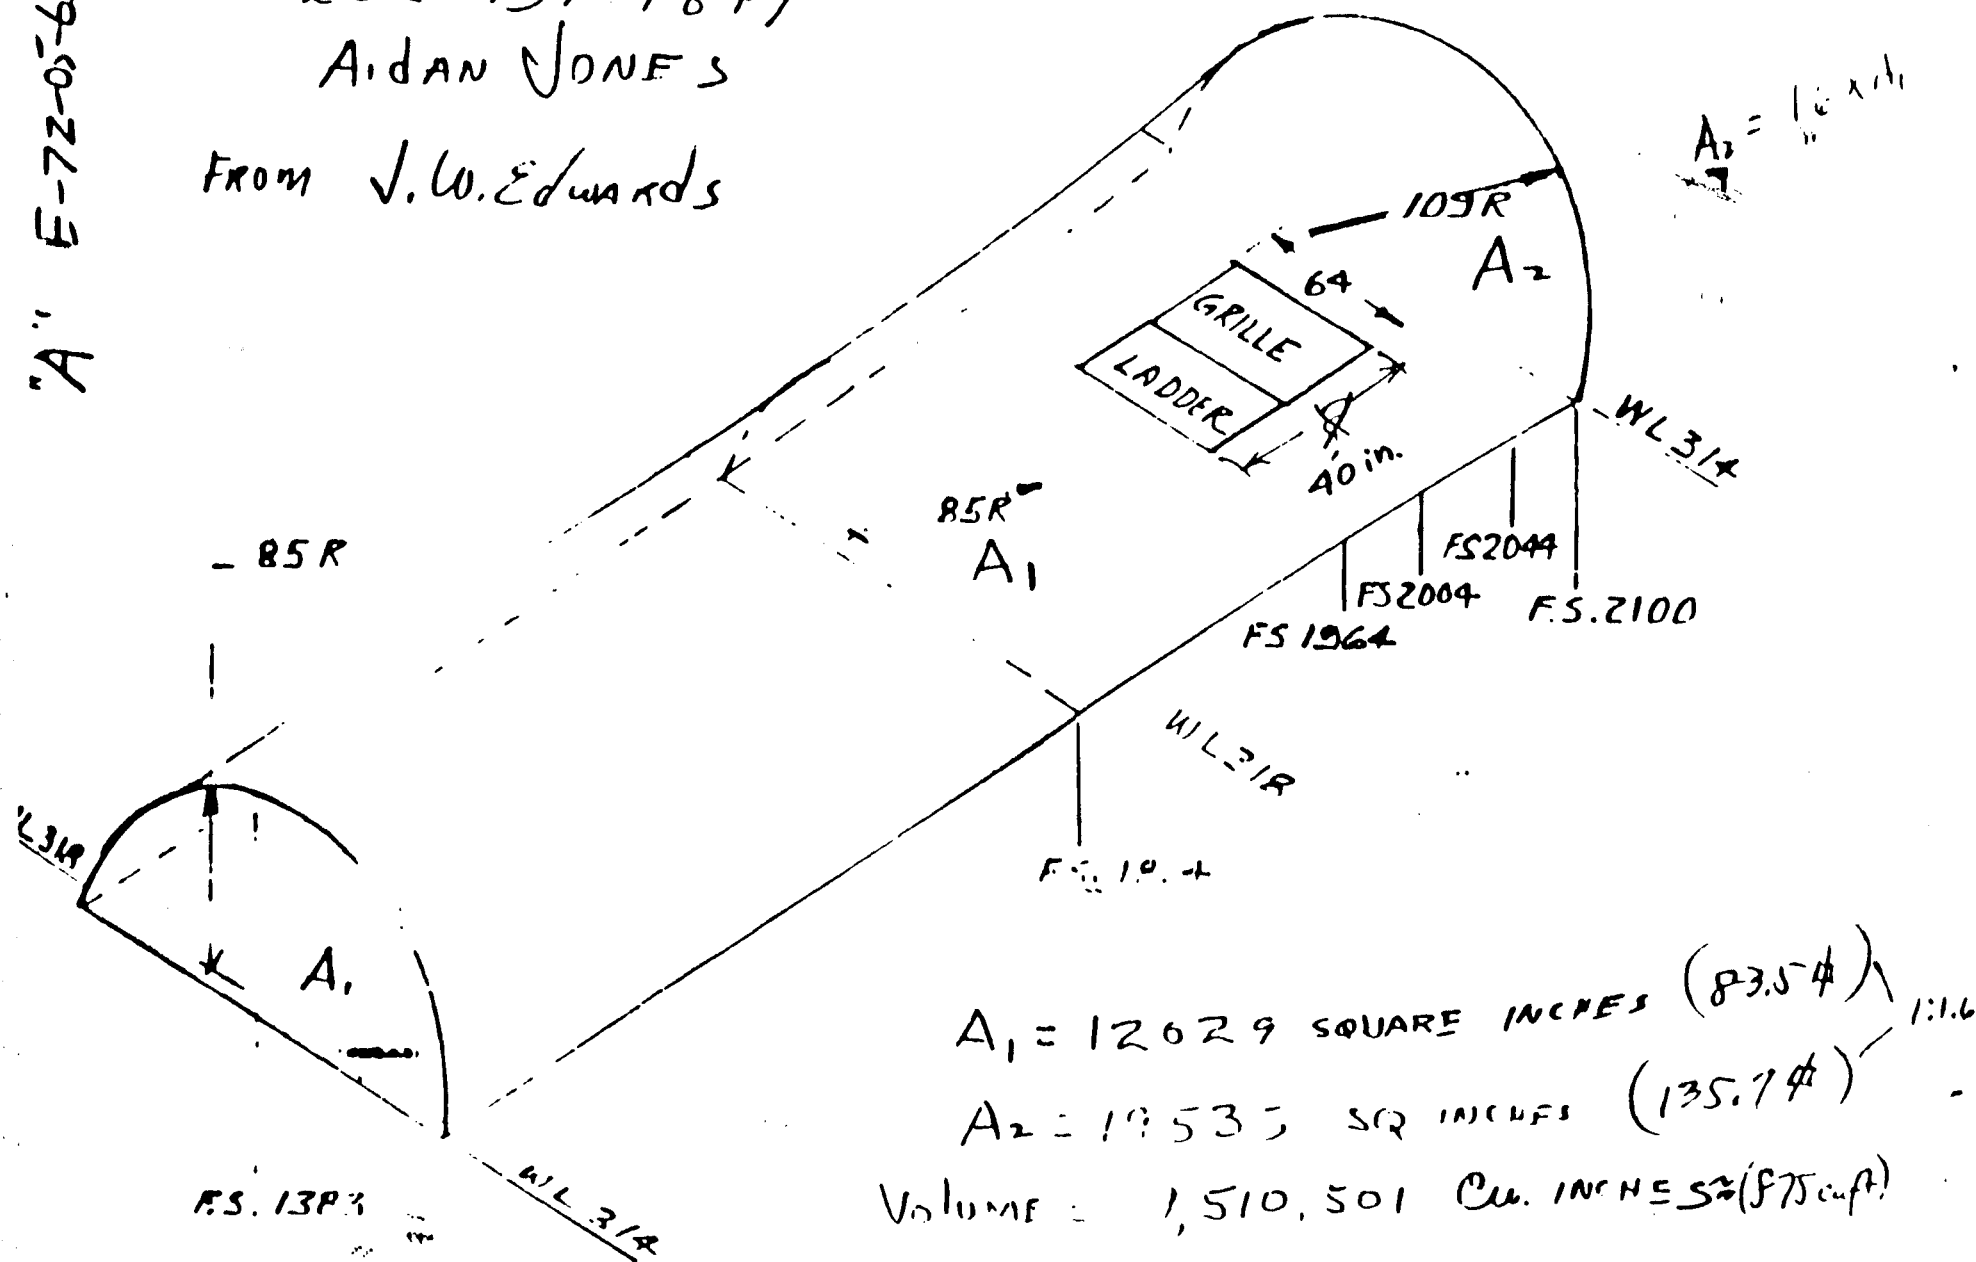 "A" E-72-05-6
AidAN JONES
FROM J.W.EdwARds
109R
A2
64
GRILLE
LADDER
40 in.
WL 314
85R
A1
- 85 R
FS2044
FS2004
F.S.2100
FS 1964
A1
WL 314
A1 = 12029 SQUARE INCHES (83.5 ⌗)
1:1.6
SQ INCHES (135.7 ⌗)
VOlUME = 1,510,501 Cu. INCHES ≈ (875 cuft)